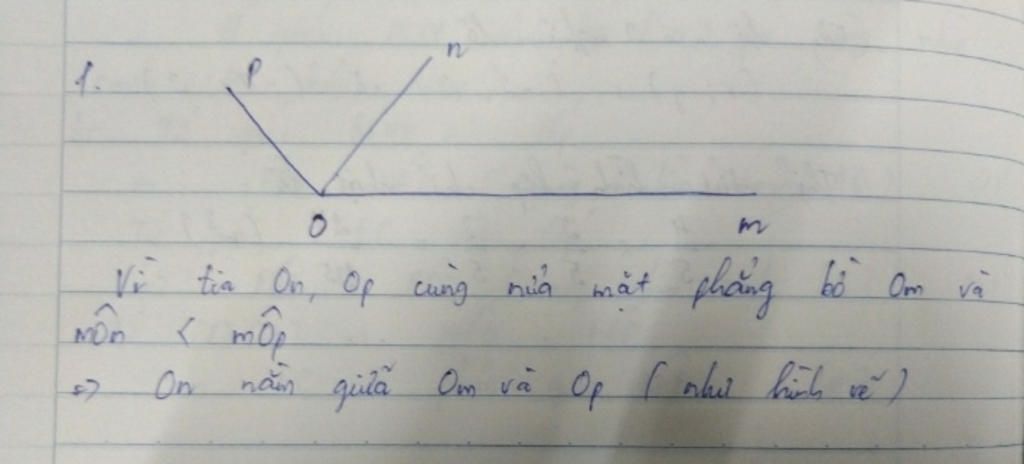 1.
p
n
O
m
Vì tia On, Op cùng nửa mặt phẳng bờ Om và
mÔn < mÔp
=> On nằm giữa Om và Op ( như hình vẽ )